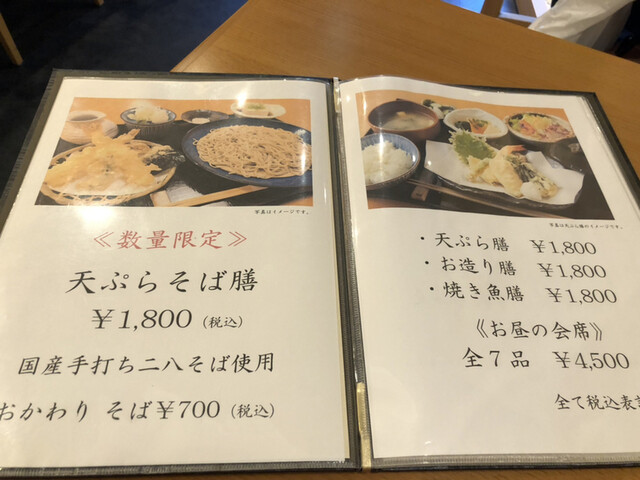 写真はイメージです。
《数量限定》
天ぷらそば膳
￥1,800 (税込)
国産手打ち二八そば使用
おかわり そば￥700 (税込)
写真は天ぷら膳のイメージです。
・天ぷら膳 ￥1,800
・お造り膳 ￥1,800
・焼き魚膳 ￥1,800
《お昼の会席》
全７品 ￥4,500
全て税込表